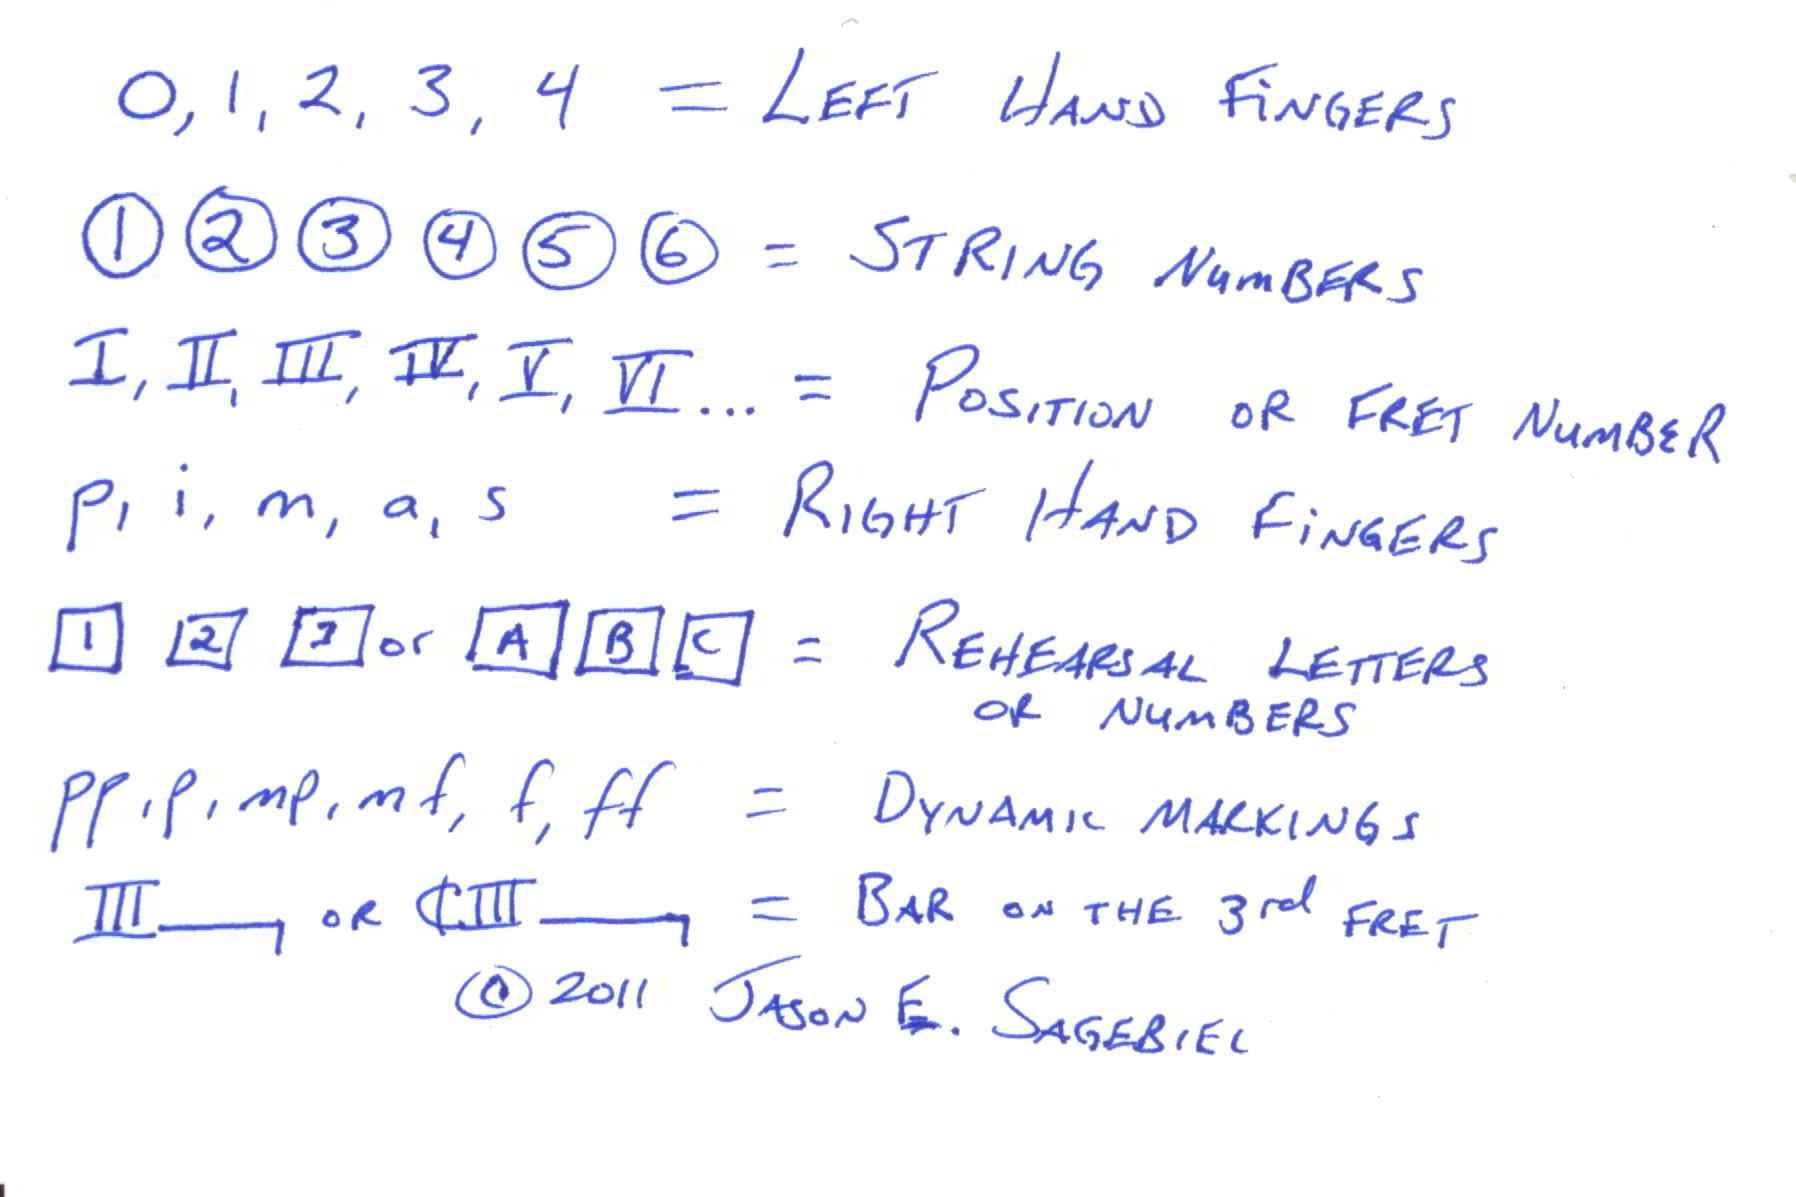 0, 1, 2, 3, 4 = LEFT HAND FiNGERS
① ② ③ ④ ⑤ ⑥ = STRING NUMBERS
I, II, III, IV, V, VI... = POSITION OR FRET NUMBER
p, i, m, a, s = RIGHT HAND FiNGERS
1 2 3 or A B C = REHEARSAL LETTERS
OR NUMBERS
pp, p, mp, mf, f, ff = DYNAMIC MARKINGS
III or ₵III = BAR ON THE 3rd FRET
© 2011 JASON E. SAGEBIEL